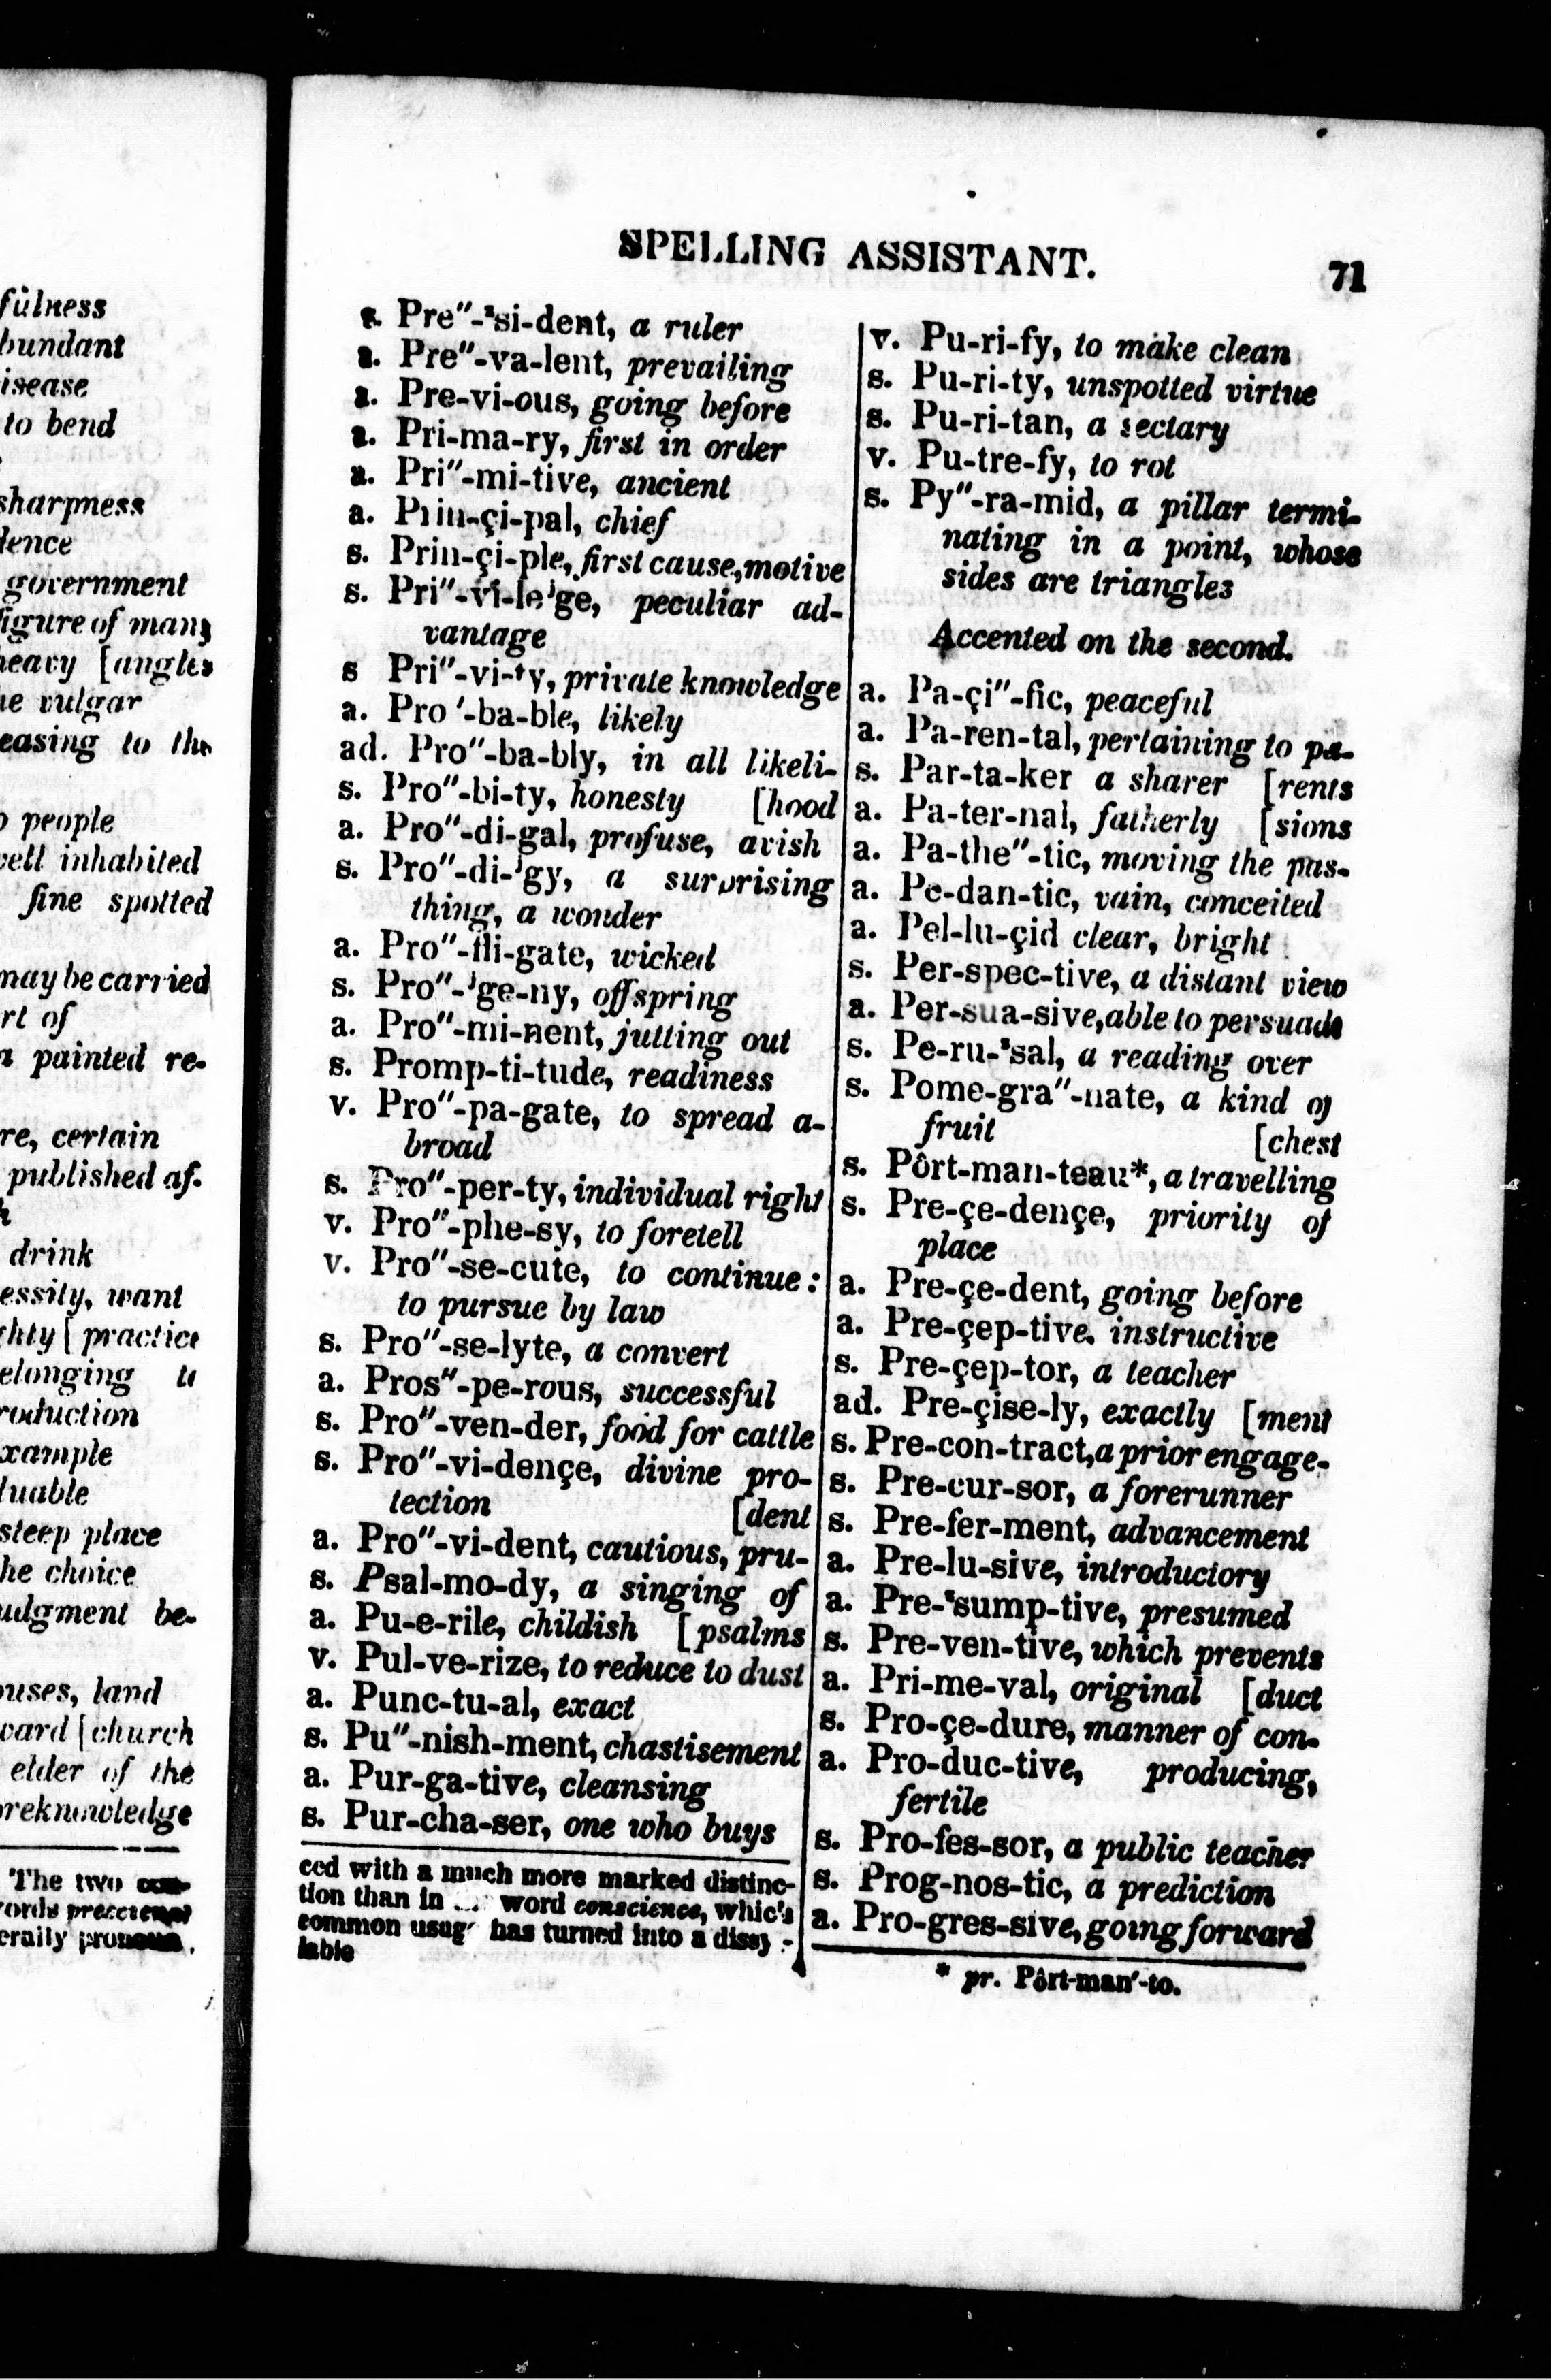 fulness
bundant
isease
to bend
sharpness
dence
government
figure of many
heavy [angles
he vulgar
easing to the
o people
well inhabited
fine spotted
may be carried
rt of
a painted re-
re, certain
published af-
drink
essity, want
ghty [practice
elonging to
roduction
xample
luable
steep place
he choice
udgment be-
ouses, land
ward [church
elder of the
oreknowledge
The two com-
erally
SPELLING ASSISTANT. 71
s. Pre"-ᶻsi-dent, a ruler
a. Pre"-va-lent, prevailing
a. Pre-vi-ous, going before
a. Pri-ma-ry, first in order
a. Pri"-mi-tive, ancient
a. Prin-çi-pal, chief
s. Prin-çi-ple, first cause, motive
s. Pri"-vi-leʲge, peculiar ad-
vantage
s Pri"-vi-ty, private knowledge
a. Pro'-ba-ble, likely
ad. Pro"-ba-bly, in all likeli-
s. Pro"-bi-ty, honesty [hood
a. Pro"-di-gal, profuse, avish
s. Pro"-di-ʲgy, a surprising
thing, a wonder
a. Pro"-fli-gate, wicked
s. Pro"-ʲge-ny, offspring
a. Pro"-mi-nent, jutting out
s. Promp-ti-tude, readiness
v. Pro"-pa-gate, to spread a-
broad
s. Pro"-per-ty, individual right
v. Pro"-phe-sy, to foretell
v. Pro"-se-cute, to continue:
to pursue by law
s. Pro"-se-lyte, a convert
a. Pros"-pe-rous, successful
s. Pro"-ven-der, food for cattle
s. Pro"-vi-dençe, divine pro-
tection [dent
a. Pro"-vi-dent, cautious, pru-
s. Psal-mo-dy, a singing of
a. Pu-e-rile, childish [psalms
v. Pul-ve-rize, to reduce to dust
a. Punc-tu-al, exact
s. Pu"-nish-ment, chastisement
a. Pur-ga-tive, cleansing
s. Pur-cha-ser, one who buys
ced with a much more marked distinc-
tion than in word conscience, which
common usage has turned into a dissy -
lable
v. Pu-ri-fy, to make clean
s. Pu-ri-ty, unspotted virtue
s. Pu-ri-tan, a sectary
v. Pu-tre-fy, to rot
s. Py"-ra-mid, a pillar termi-
nating in a point, whose
sides are triangles
Accented on the second.
a. Pa-çi"-fic, peaceful
a. Pa-ren-tal, pertaining to pa-
s. Par-ta-ker a sharer [rents
a. Pa-ter-nal, fatherly [sions
a. Pa-the"-tic, moving the pas-
a. Pe-dan-tic, vain, conceited
a. Pel-lu-çid clear, bright
s. Per-spec-tive, a distant view
a. Per-sua-sive, able to persuade
s. Pe-ru-ᶻsal, a reading over
s. Pome-gra"-nate, a kind of
fruit [chest
s. Pôrt-man-teau*, a travelling
s. Pre-çe-dençe, priority of
place
a. Pre-çe-dent, going before
a. Pre-çep-tive, instructive
s. Pre-çep-tor, a teacher
ad. Pre-çise-ly, exactly [ment
s. Pre-con-tract, a prior engage-
s. Pre-cur-sor, a forerunner
s. Pre-fer-ment, advancement
a. Pre-lu-sive, introductory
a. Pre-ᶻsump-tive, presumed
s. Pre-ven-tive, which prevents
a. Pri-me-val, original [duct
s. Pro-çe-dure, manner of con-
a. Pro-duc-tive, producing,
fertile
s. Pro-fes-sor, a public teacher
s. Prog-nos-tic, a prediction
a. Pro-gres-sive, going forward
* pr. Pôrt-man'-to.